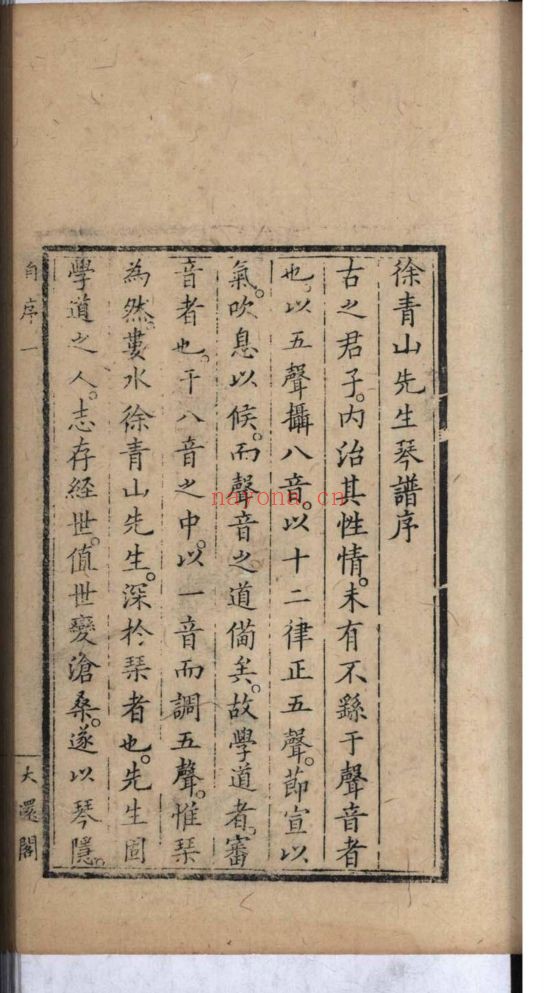 徐青山先生琴譜序
古之君子。内治其性情。未有不繇于聲音者
也。以五聲攝八音。以十二律正五聲。節宣以
氣。吹息以候。而聲音之道備矣。故學道者。審
音者也。于八音之中。以一音而調五聲。惟琴
為然。婁水徐青山先生。深於琴者也。先生固
學道之人。志存經世。值世變滄桑。遂以琴隱。
自序 一
大還閣
nayona.cn